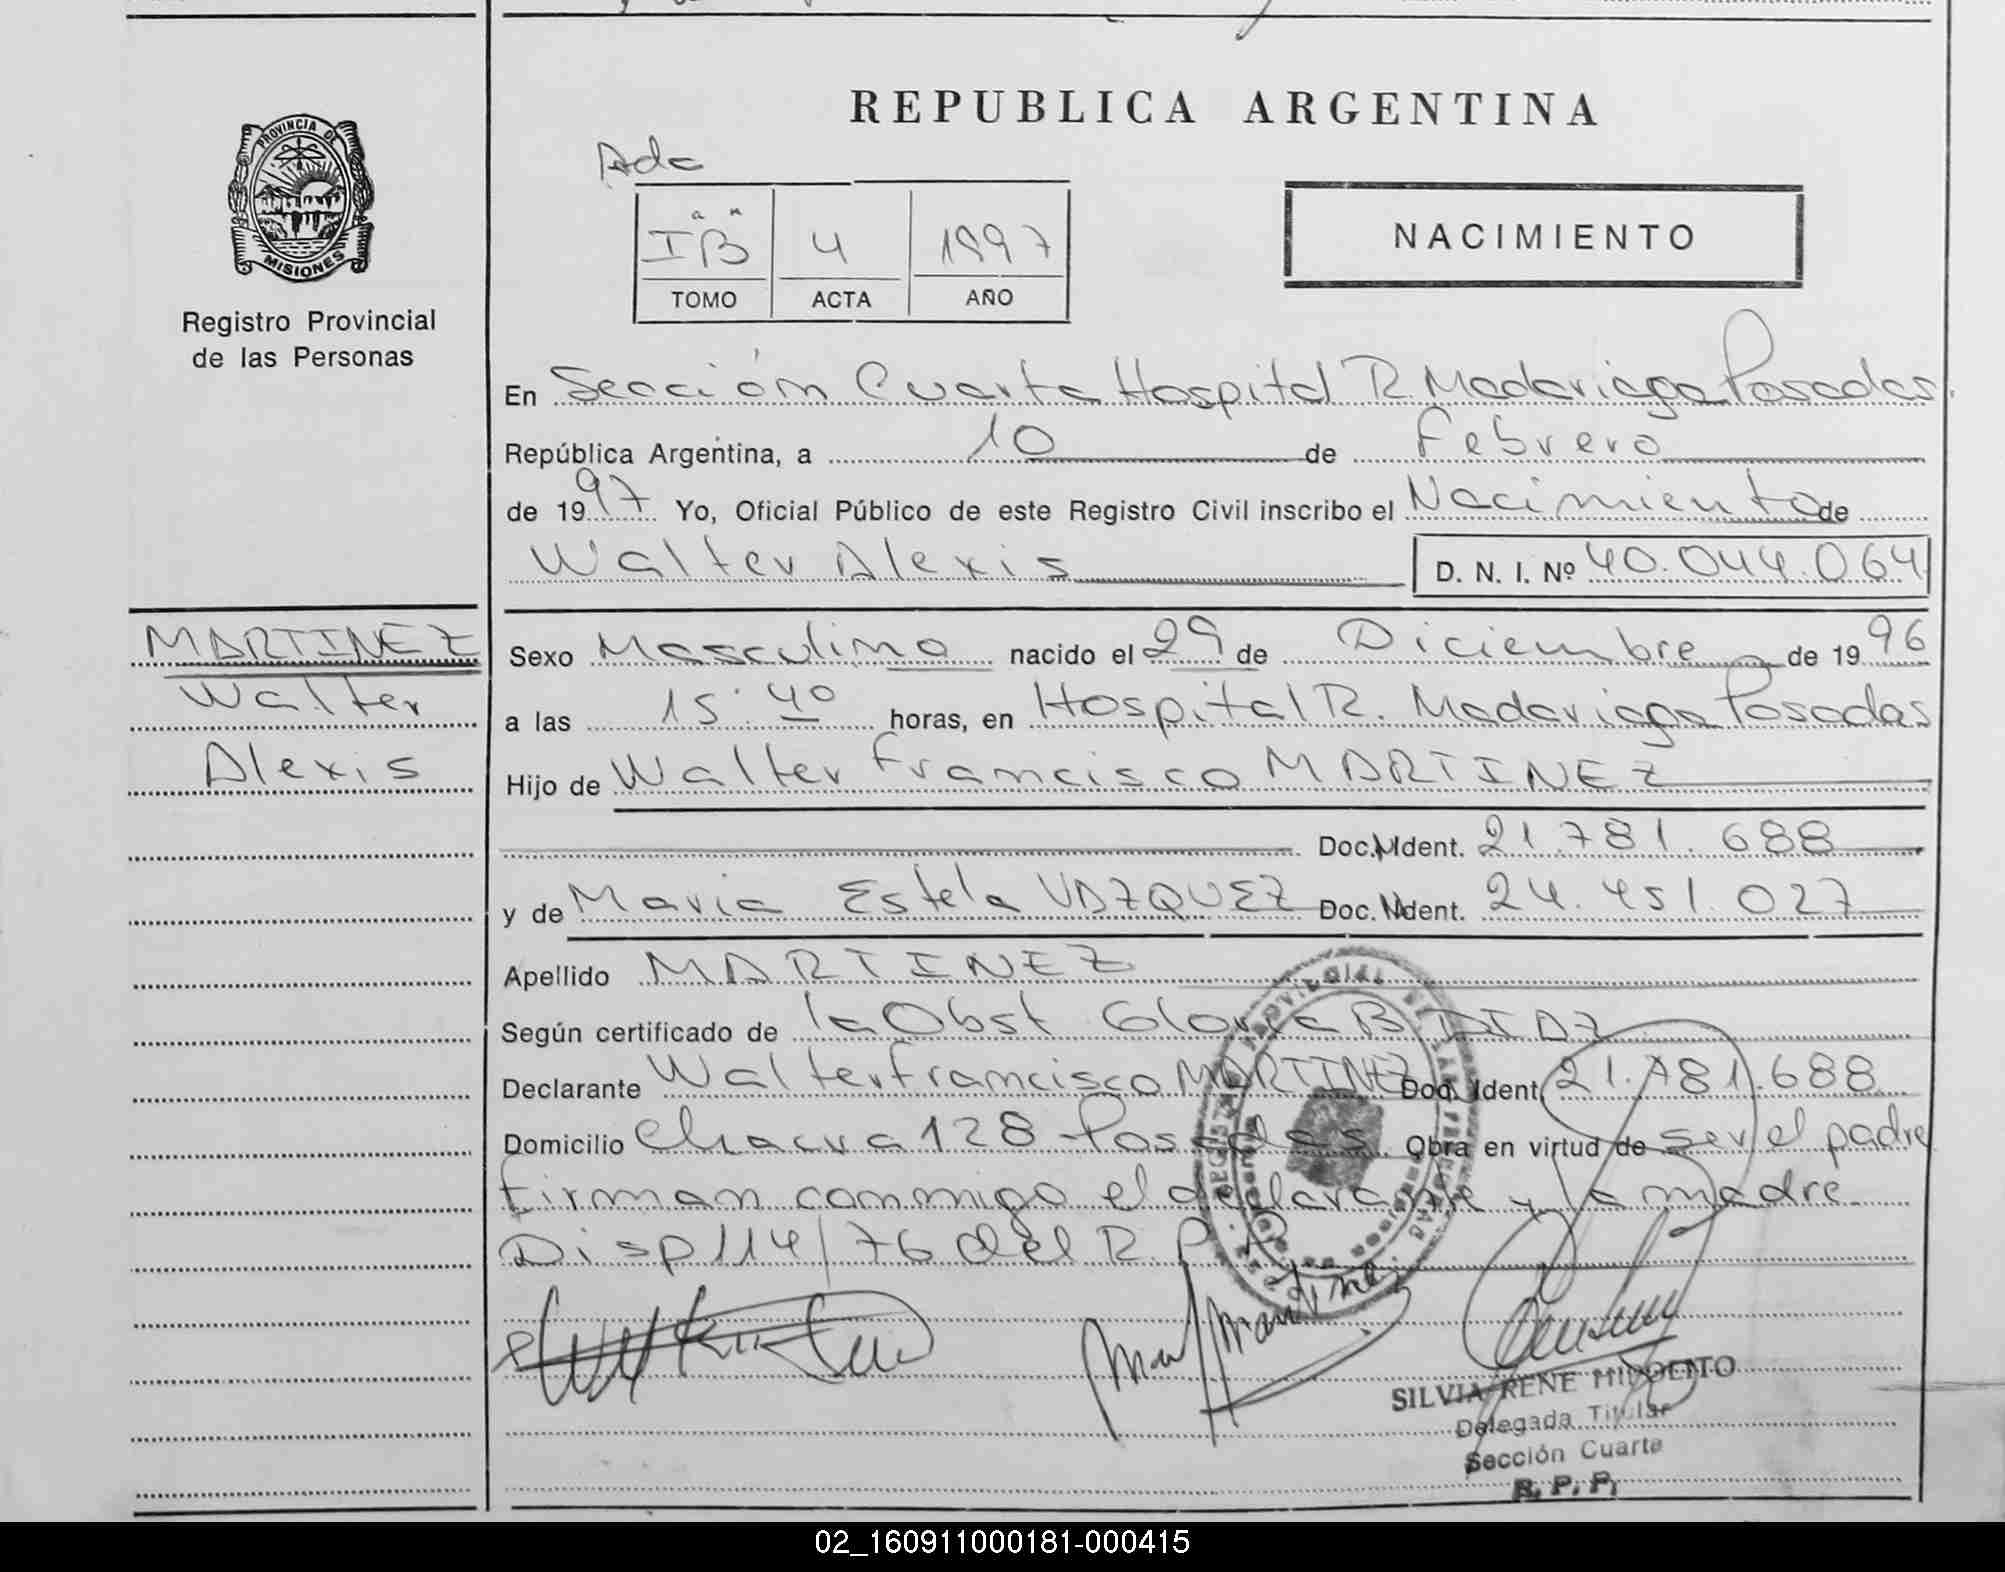 REPUBLICA ARGENTINA
PROVINCIA DE
MISIONES
Registro Provincial
de las Personas
Adc
IB 4 1997
TOMO ACTA AÑO
NACIMIENTO
En Sección Cuarta Hospital R. Madariaga Posadas.
República Argentina, a 10 de Febrero
de 1997 Yo, Oficial Público de este Registro Civil inscribo el Nacimiento de
Walter Alexis D. N. I. Nº 40.044.064
MARTINEZ
Walter
Alexis
Sexo Masculino nacido el 29 de Diciembre de 1996
a las 15:40 horas, en Hospital R. Madariaga Posadas
Hijo de Walter Francisco MARTINEZ
Doc. Ident. 21.781.688
y de Maria Estela VAZQUEZ Doc. Ident. 24.451.027
Apellido MARTINEZ
Según certificado de la Obst Gloria B DIAZ
Declarante Walter Francisco MARTINEZ Doc. Ident. 21.781.688
Domicilio Chacra 128 Posadas Obra en virtud de ser el padre
firman conmigo el declarante y la madre
Disp 114/76 del R.P.P.
SILVIA RENE HIPOLITO
Delegada Titular
Sección Cuarta
R. P. P.
02_160911000181-000415